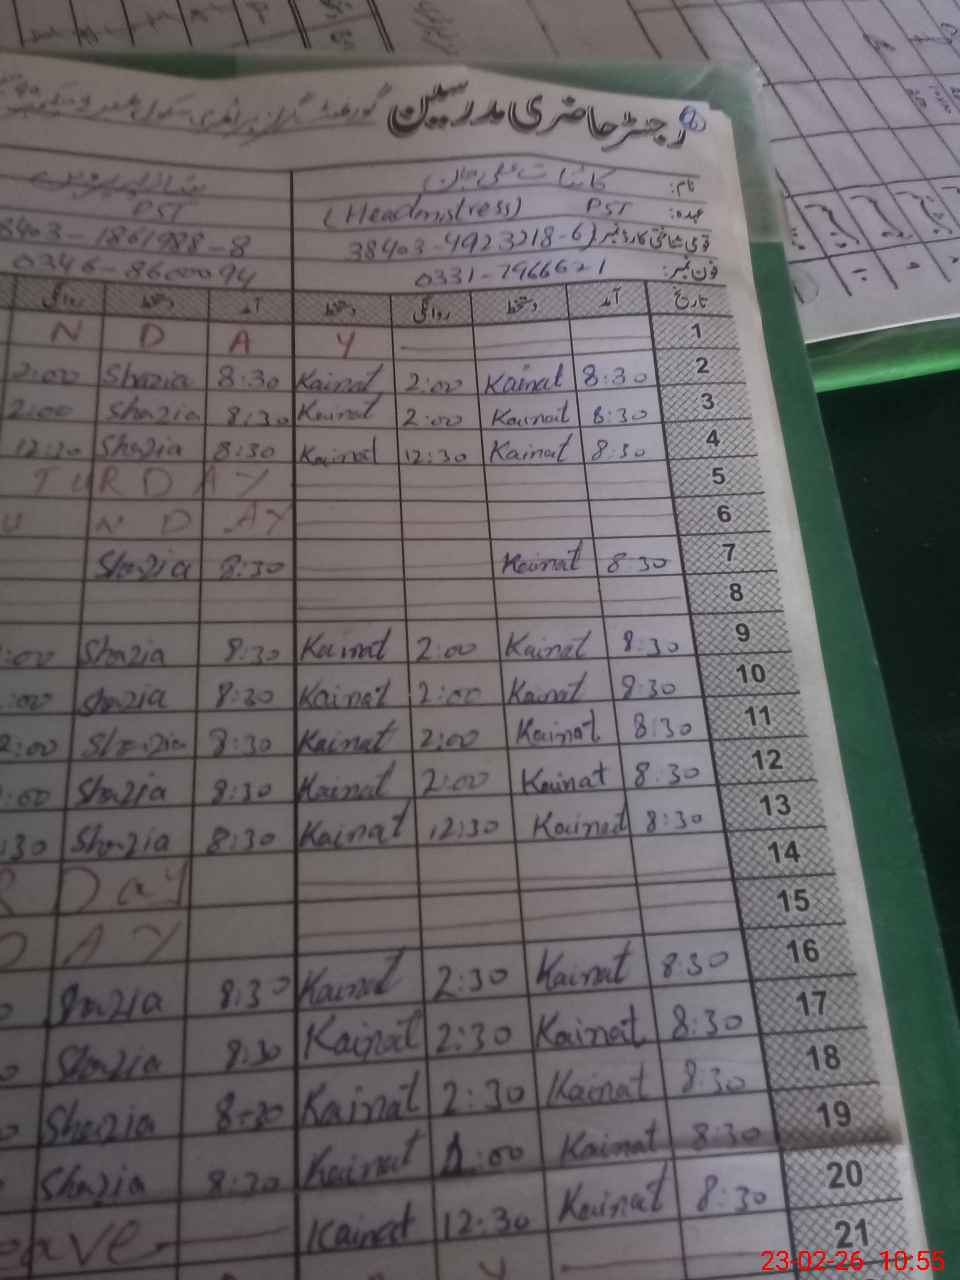 رجسٹر حاضری مدرسین
نام: کائنات
عہدہ: PST (Headmistress) PST
قومی شناختی کارڈ نمبر 38403-4923218-6 8403-1861988-8
فون نمبر: 0331-7966621 0346-8600094
تاریخ آمد دستخط روانگی دستخط آمد دستخط روانگی
1 N D A Y
2 8:30 Kainat 2:00 Kainat 8:30 Shazia 2:00
3 8:30 Kainat 2:00 Kainat 8:30 Shazia 2:00
4 8:30 Kainat 12:30 Kainat 8:30 Shazia 12:30
5 T U R D A Y
6 U N D A Y
7 8:30 Kainat 8:30 Shazia
8
9 8:30 Kainat 2:00 Kainat 8:30 Shazia :00
10 8:30 Kainat 2:00 Kainat 8:30 Shazia :00
11 8:30 Kainat 2:00 Kainat 8:30 Shazia 2:00
12 8:30 Kainat 2:00 Kainat 8:30 Shazia :00
13 8:30 Kainat 12:30 Kainat 8:30 Shazia :30
14 R D a y
15 D A Y
16 8:30 Kainat 2:30 Kainat 8:30 Shazia 0
17 8:30 Kainat 2:30 Kainat 8:30 Shazia 0
18 8:30 Kainat 2:30 Kainat 8:30 Shazia 0
19 8:30 Kainat 1:00 Kainat 8:30 Shazia
20 8:30 Kainat 12:30 Kainat eave
21 Y
23-02-26 10:55